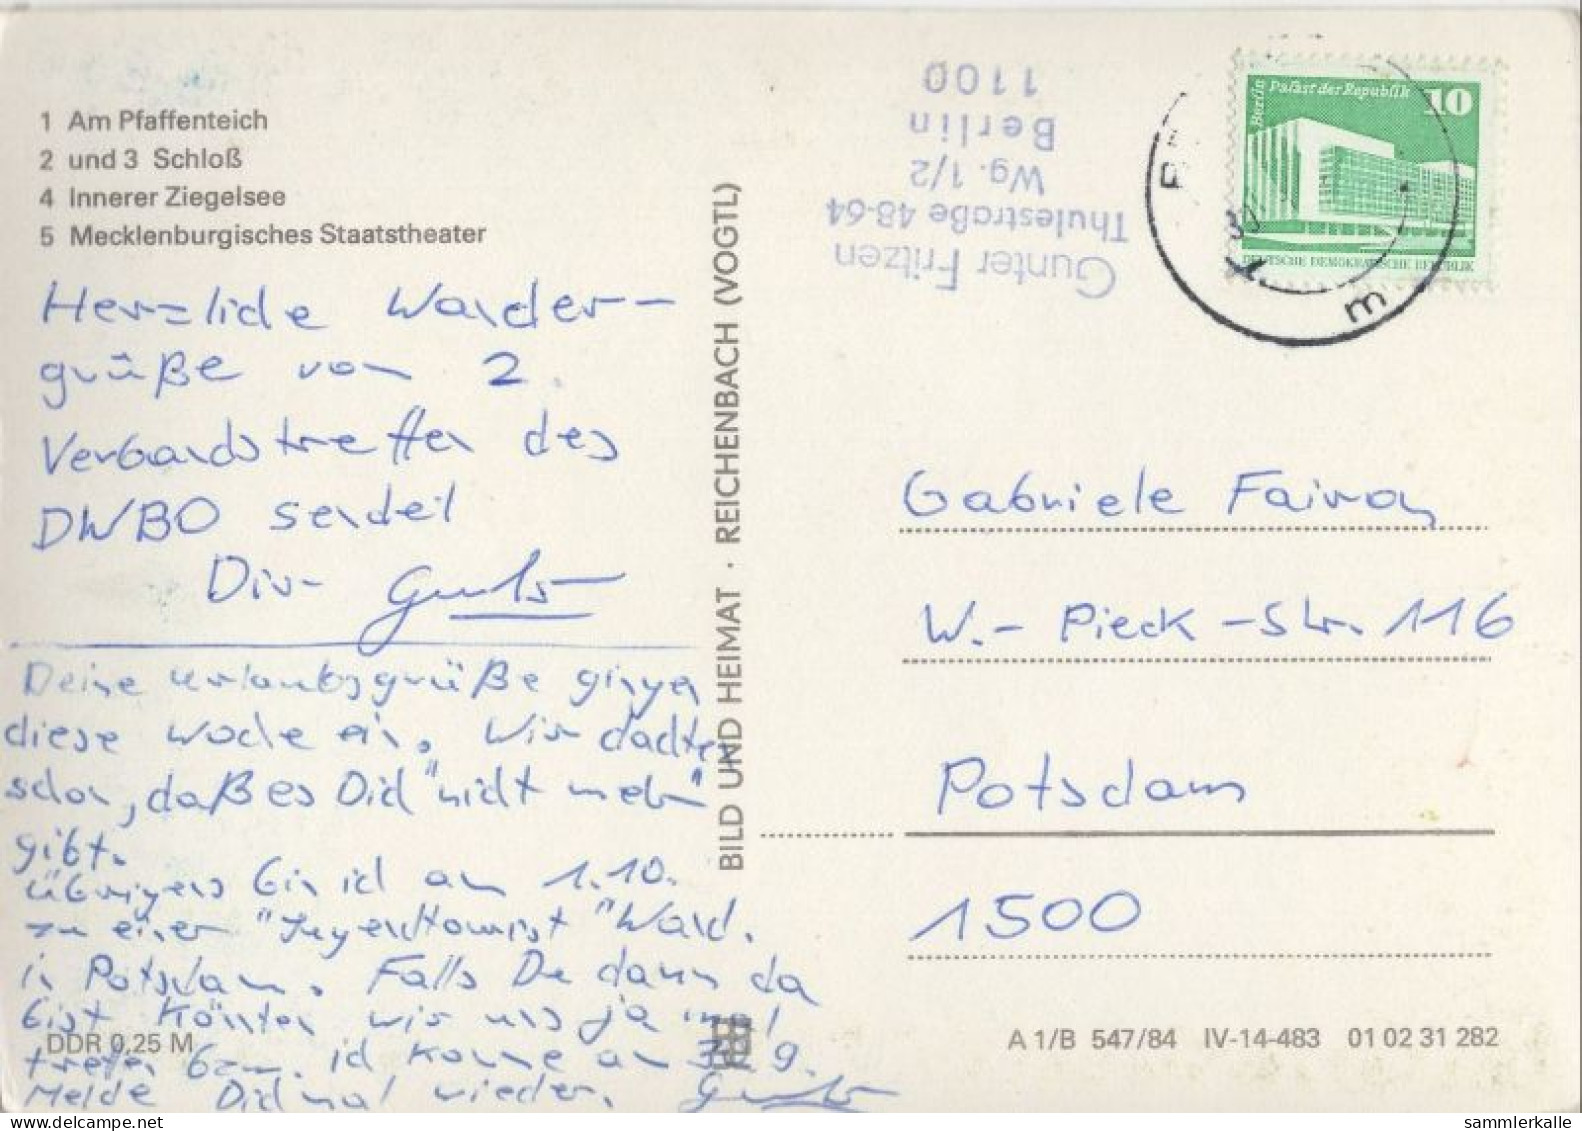 1 Am Pfaffenteich
2 und 3 Schloß
4 Innerer Ziegelsee
5 Mecklenburgisches Staatstheater
Herzliche Wander-
grüße vom 2.
Verbandstreffen des
DWBO sendet
Dir Gunter
Deine Urlaubsgrüße gingen
diese Woche ein. Wir dachten
schon, daß es Dich "nicht mehr"
gibt.
Übrigens bin ich am 1.10.
zu einer "Jugendtourist" Wand.
in Potsdam. Falls Du dann da
bist könnten wir uns ja mal
treffen bzw. ich komme am 30.9.
Melde Dich mal wieder. Gunter
DDR 0,25 M
BILD UND HEIMAT · REICHENBACH (VOGTL)
Gunter Fritzen
Thulestraße 48-64
Wg. 1/2
Berlin
1100
Berlin Palast der Republik 10
DEUTSCHE DEMOKRATISCHE REPUBLIK
m
Gabriele
W.- Pieck -Str. 116
Potsdam
1500
A 1/B 547/84 IV-14-483 01 02 31 282
sammlerkalle
www.delcampe.net